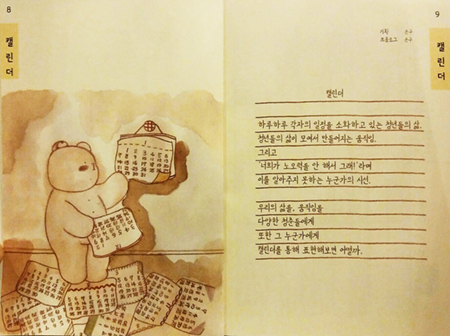 8
캘린더
9
캘린더
기획
프롤로그
캘린더
하루하루 각자의 일정을 소화하고 있는 청년들의 삶.
청년들의 삶이 모여서 만들어지는 움직임.
그리고
너희가 노오력을 안 해서 그래!'라며
이를 알아주지 못하는 누군가의 시선.
우리의 삶을, 움직임을
다양한 청춘들에게
또한 그 누군가에게
캘린더를 통해 표현해보면 어떨까.